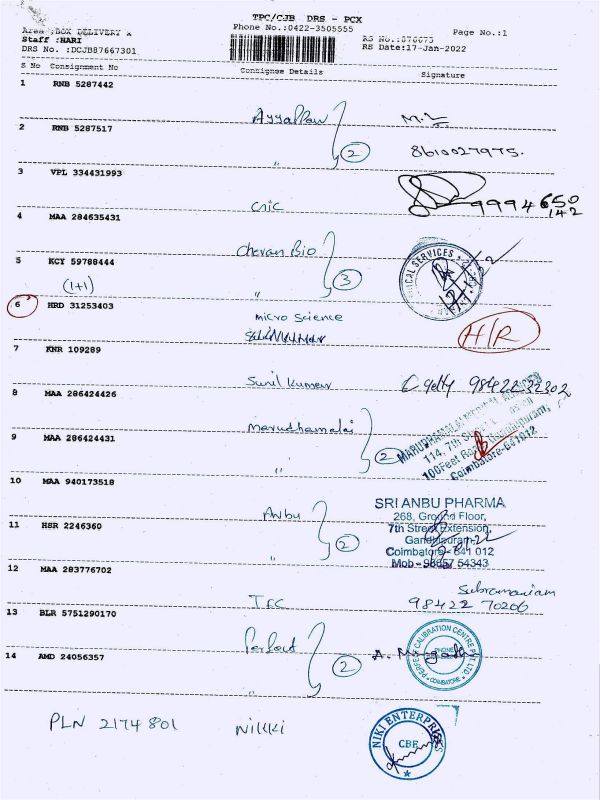 TPC/CJB DRS - PCX
Area :BOX DELIVERY x
Phone No.:0422-3505555
Page No.:1
Staff :HARI
RS No.:876673
DRS No. :DCJB87667301
RS Date:17-Jan-2022
S No Consignment No Consignee Details Signature
1 RNB 5287442
Ayyappan
2 RNB 5287517
" 2 8610027975.
3 VPL 334431993
CNIC 9994650
142
4 MAA 284635431
Chevan Bio
5 KCY 59788444
(1+1) " 3
6 HRD 31253403
micro science
H/R
7 KNR 109289
Sunil Kumar 98422 32302
8 MAA 286424426
Marudhamalai
114, 7th
9 MAA 286424431
" 2 100Feet Road, Gandhipuram,
Coimbatore-641012
10 MAA 940173518
SRI ANBU PHARMA
Anbu 268, Ground Floor,
11 HSR 2246360 7th Street Extension,
Gandhipuram,
" 2 Coimbatore - 641 012
Mob - 98657 54343
12 MAA 283776702
Subramaniam
TFC 98422 70206
13 BLR 5751290170
Perfect
PERFECT CALIBRATION CENTRE PVT.LTD.
COIMBATORE
14 AMD 24056357
" 2
PLN 2174801 Nikki
NIKI ENTERPRISES
CBE